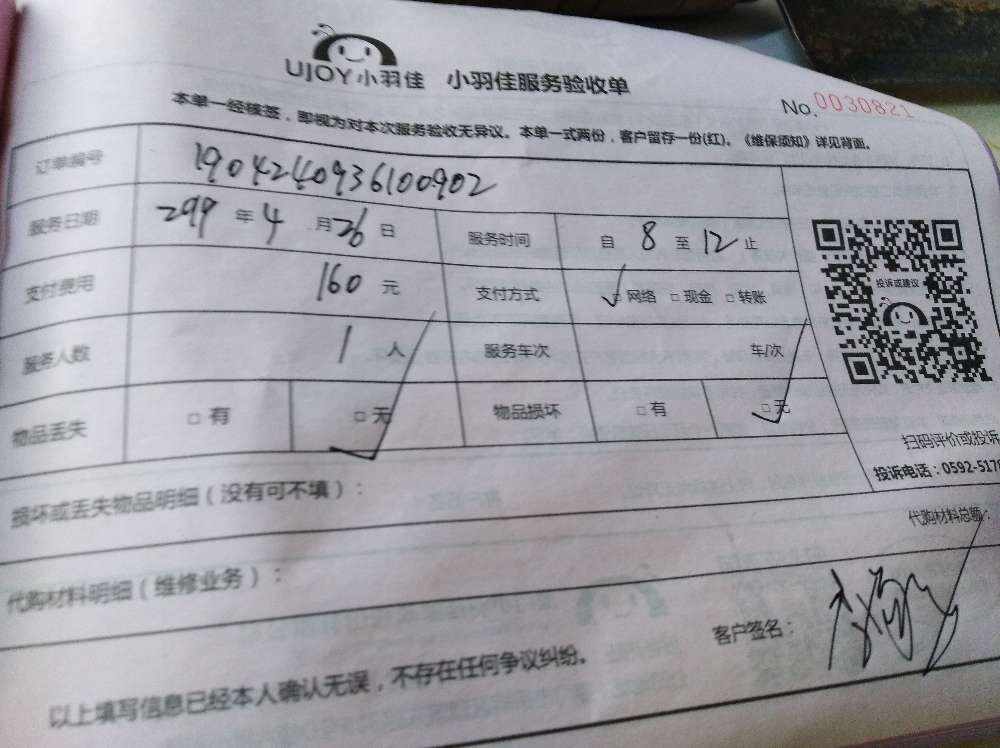 UJOY小羽佳 小羽佳服务验收单
No. 0030821
本单一经核签，即视为对本次服务验收无异议。本单一式两份，客户留存一份(红)。《维保须知》详见背面。
订单编号 1904240936100902
服务日期 2019 年 4 月 26 日 服务时间 自 8 至 12 止
支付费用 160 元 支付方式 □网络 □现金 □转账
投诉或建议
服务人数 1 人 服务车次 车/次
物品丢失 □有 □无 物品损坏 □有 □无
扫码评价或投诉
投诉电话：0592-5178
损坏或丢失物品明细（没有可不填）：
代购材料总额：
代购材料明细（维修业务）：
客户签名：
以上填写信息已经本人确认无误，不存在任何争议纠纷。